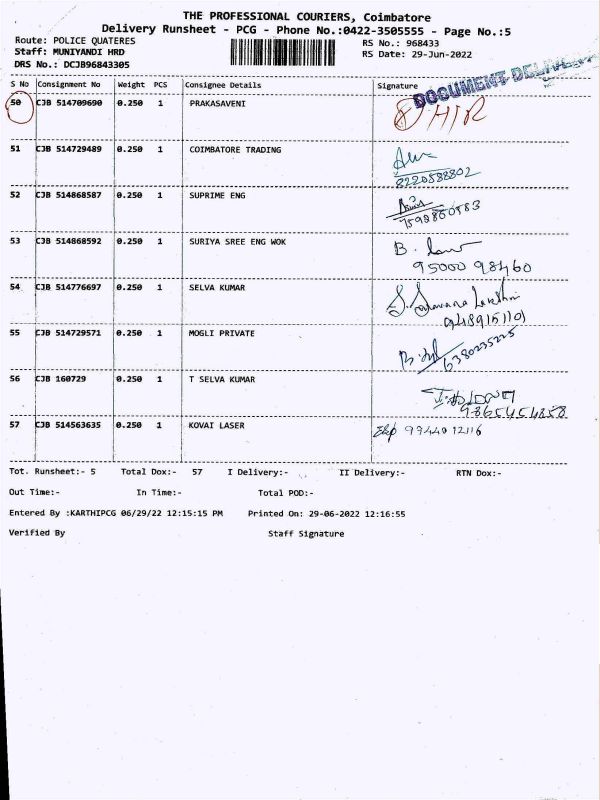 THE PROFESSIONAL COURIERS, Coimbatore
Delivery Runsheet - PCG - Phone No.:0422-3505555 - Page No.:5
Route: POLICE QUATERES RS No.: 968433
Staff: MUNIYANDI HRD RS Date: 29-Jun-2022
DRS No.: DCJB96843305
DOCUMENT DELIVERY
S No Consignment No Weight PCS Consignee Details Signature
50 CJB 514709690 0.250 1 PRAKASAVENI
51 CJB 514729489 0.250 1 COIMBATORE TRADING
8220588802
52 CJB 514868587 0.250 1 SUPRIME ENG
53 CJB 514868592 0.250 1 SURIYA SREE ENG WOK
95000 98460
54 CJB 514776697 0.250 1 SELVA KUMAR
S. Saravana Lakshmi
9489151101
55 CJB 514729571 0.250 1 MOGLI PRIVATE
6380235225
56 CJB 160729 0.250 1 T SELVA KUMAR
57 CJB 514563635 0.250 1 KOVAI LASER
99440 12116
Tot. Runsheet:- 5 Total Dox:- 57 I Delivery:- II Delivery:- RTN Dox:-
Out Time:- In Time:- Total POD:-
Entered By :KARTHIPCG 06/29/22 12:15:15 PM Printed On: 29-06-2022 12:16:55
Verified By Staff Signature